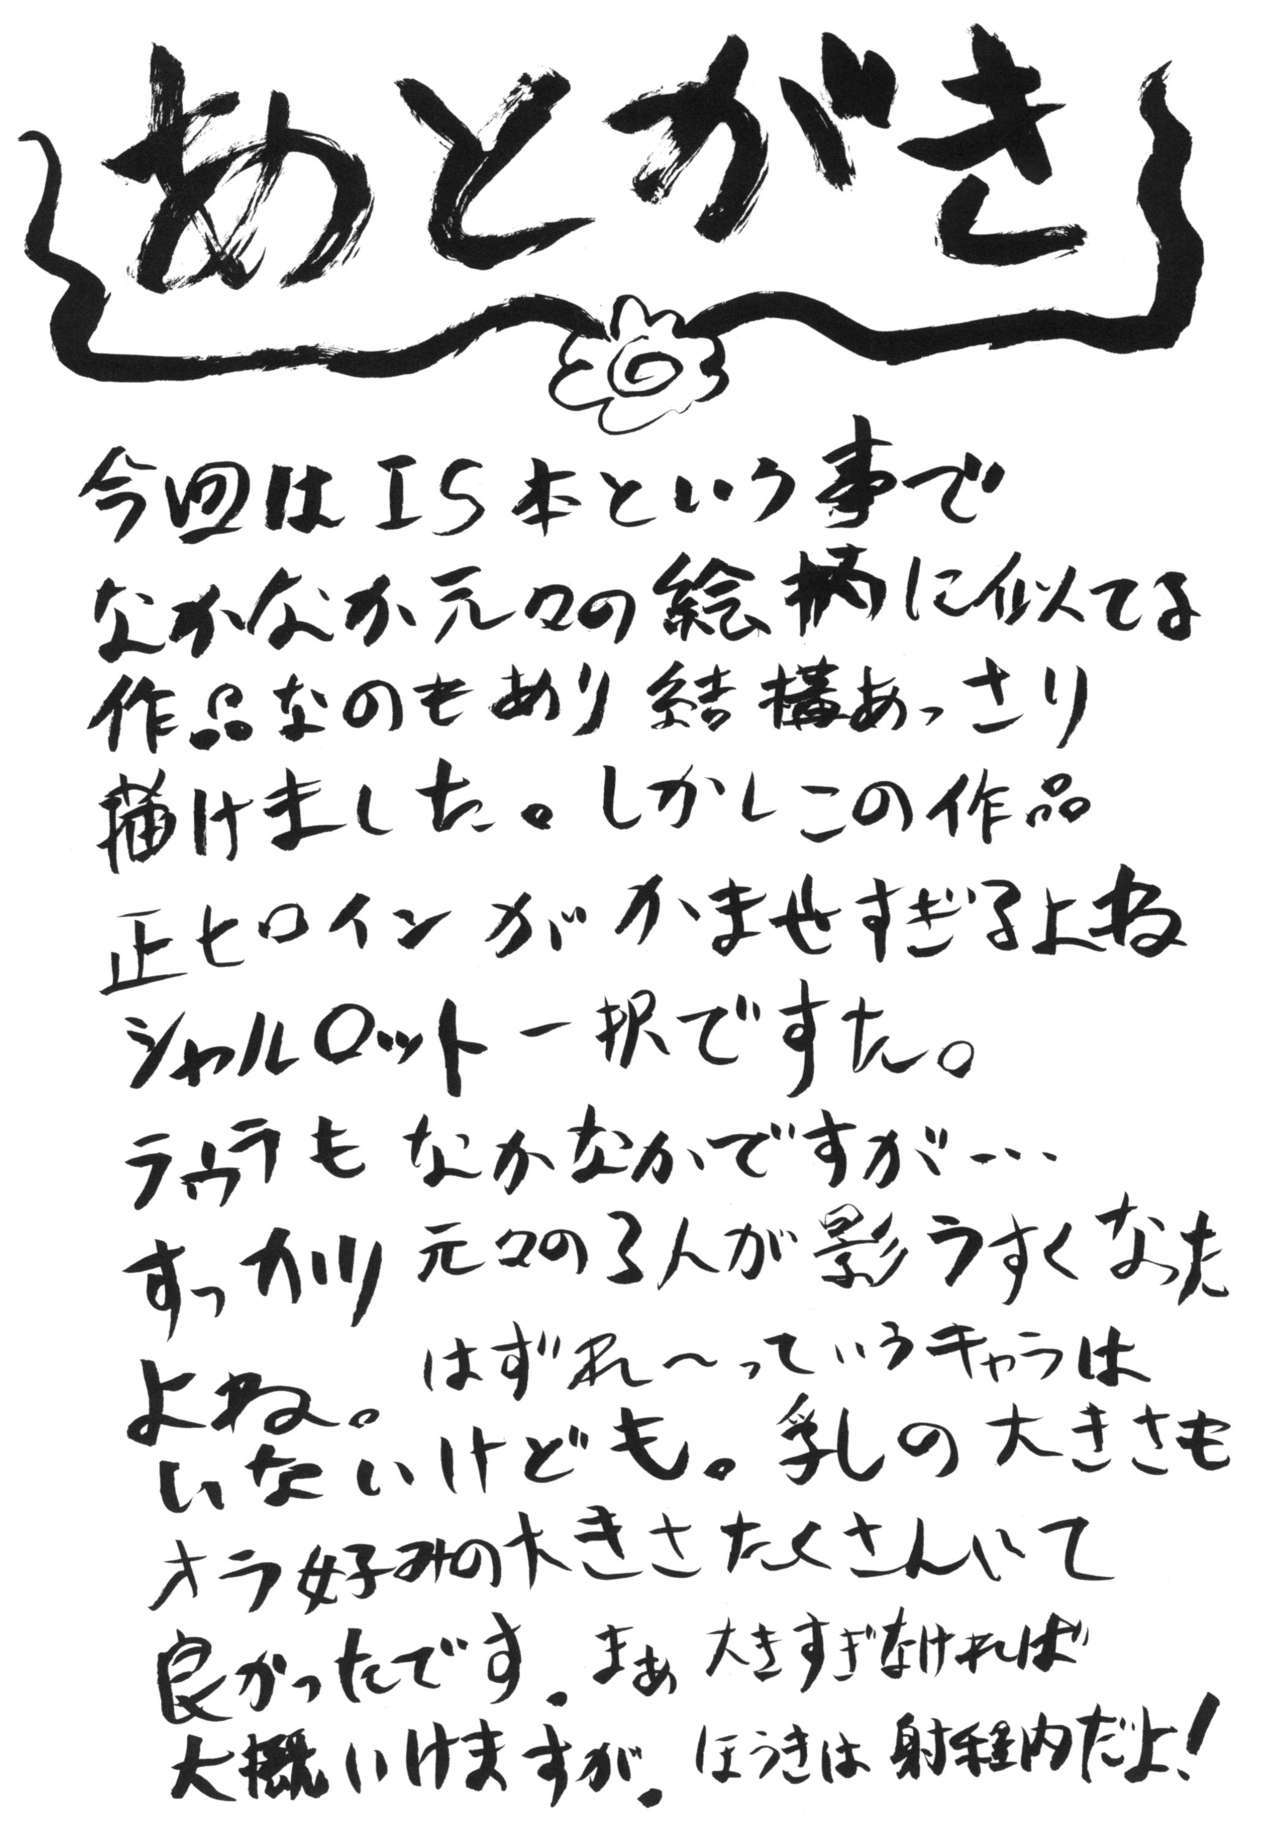 あとがき
今回はIS本という事で
なかなか元々の絵柄に似てる
作品なのもあり結構あっさり
描けました。しかしこの作品
正ヒロインがかませすぎるよね
シャルロット一択ですた。
ラウラもなかなかですが…
すっかり元々の3人が影うすくなった
よね。はずれ〜っていうキャラは
いないけども。乳しの大きさも
オラ好みの大きさたくさんいて
良かったです.まぁ大きすぎなければ
大概いけますが.ほうきは射程内だよ!